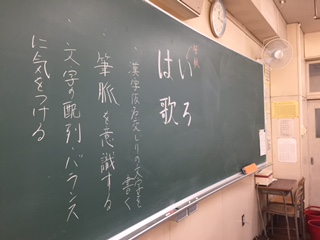 いろ
は歌
・漢字仮名交じりの文字を
書く
・筆脈を意識する
・文字の配列・バランス
に気をつける